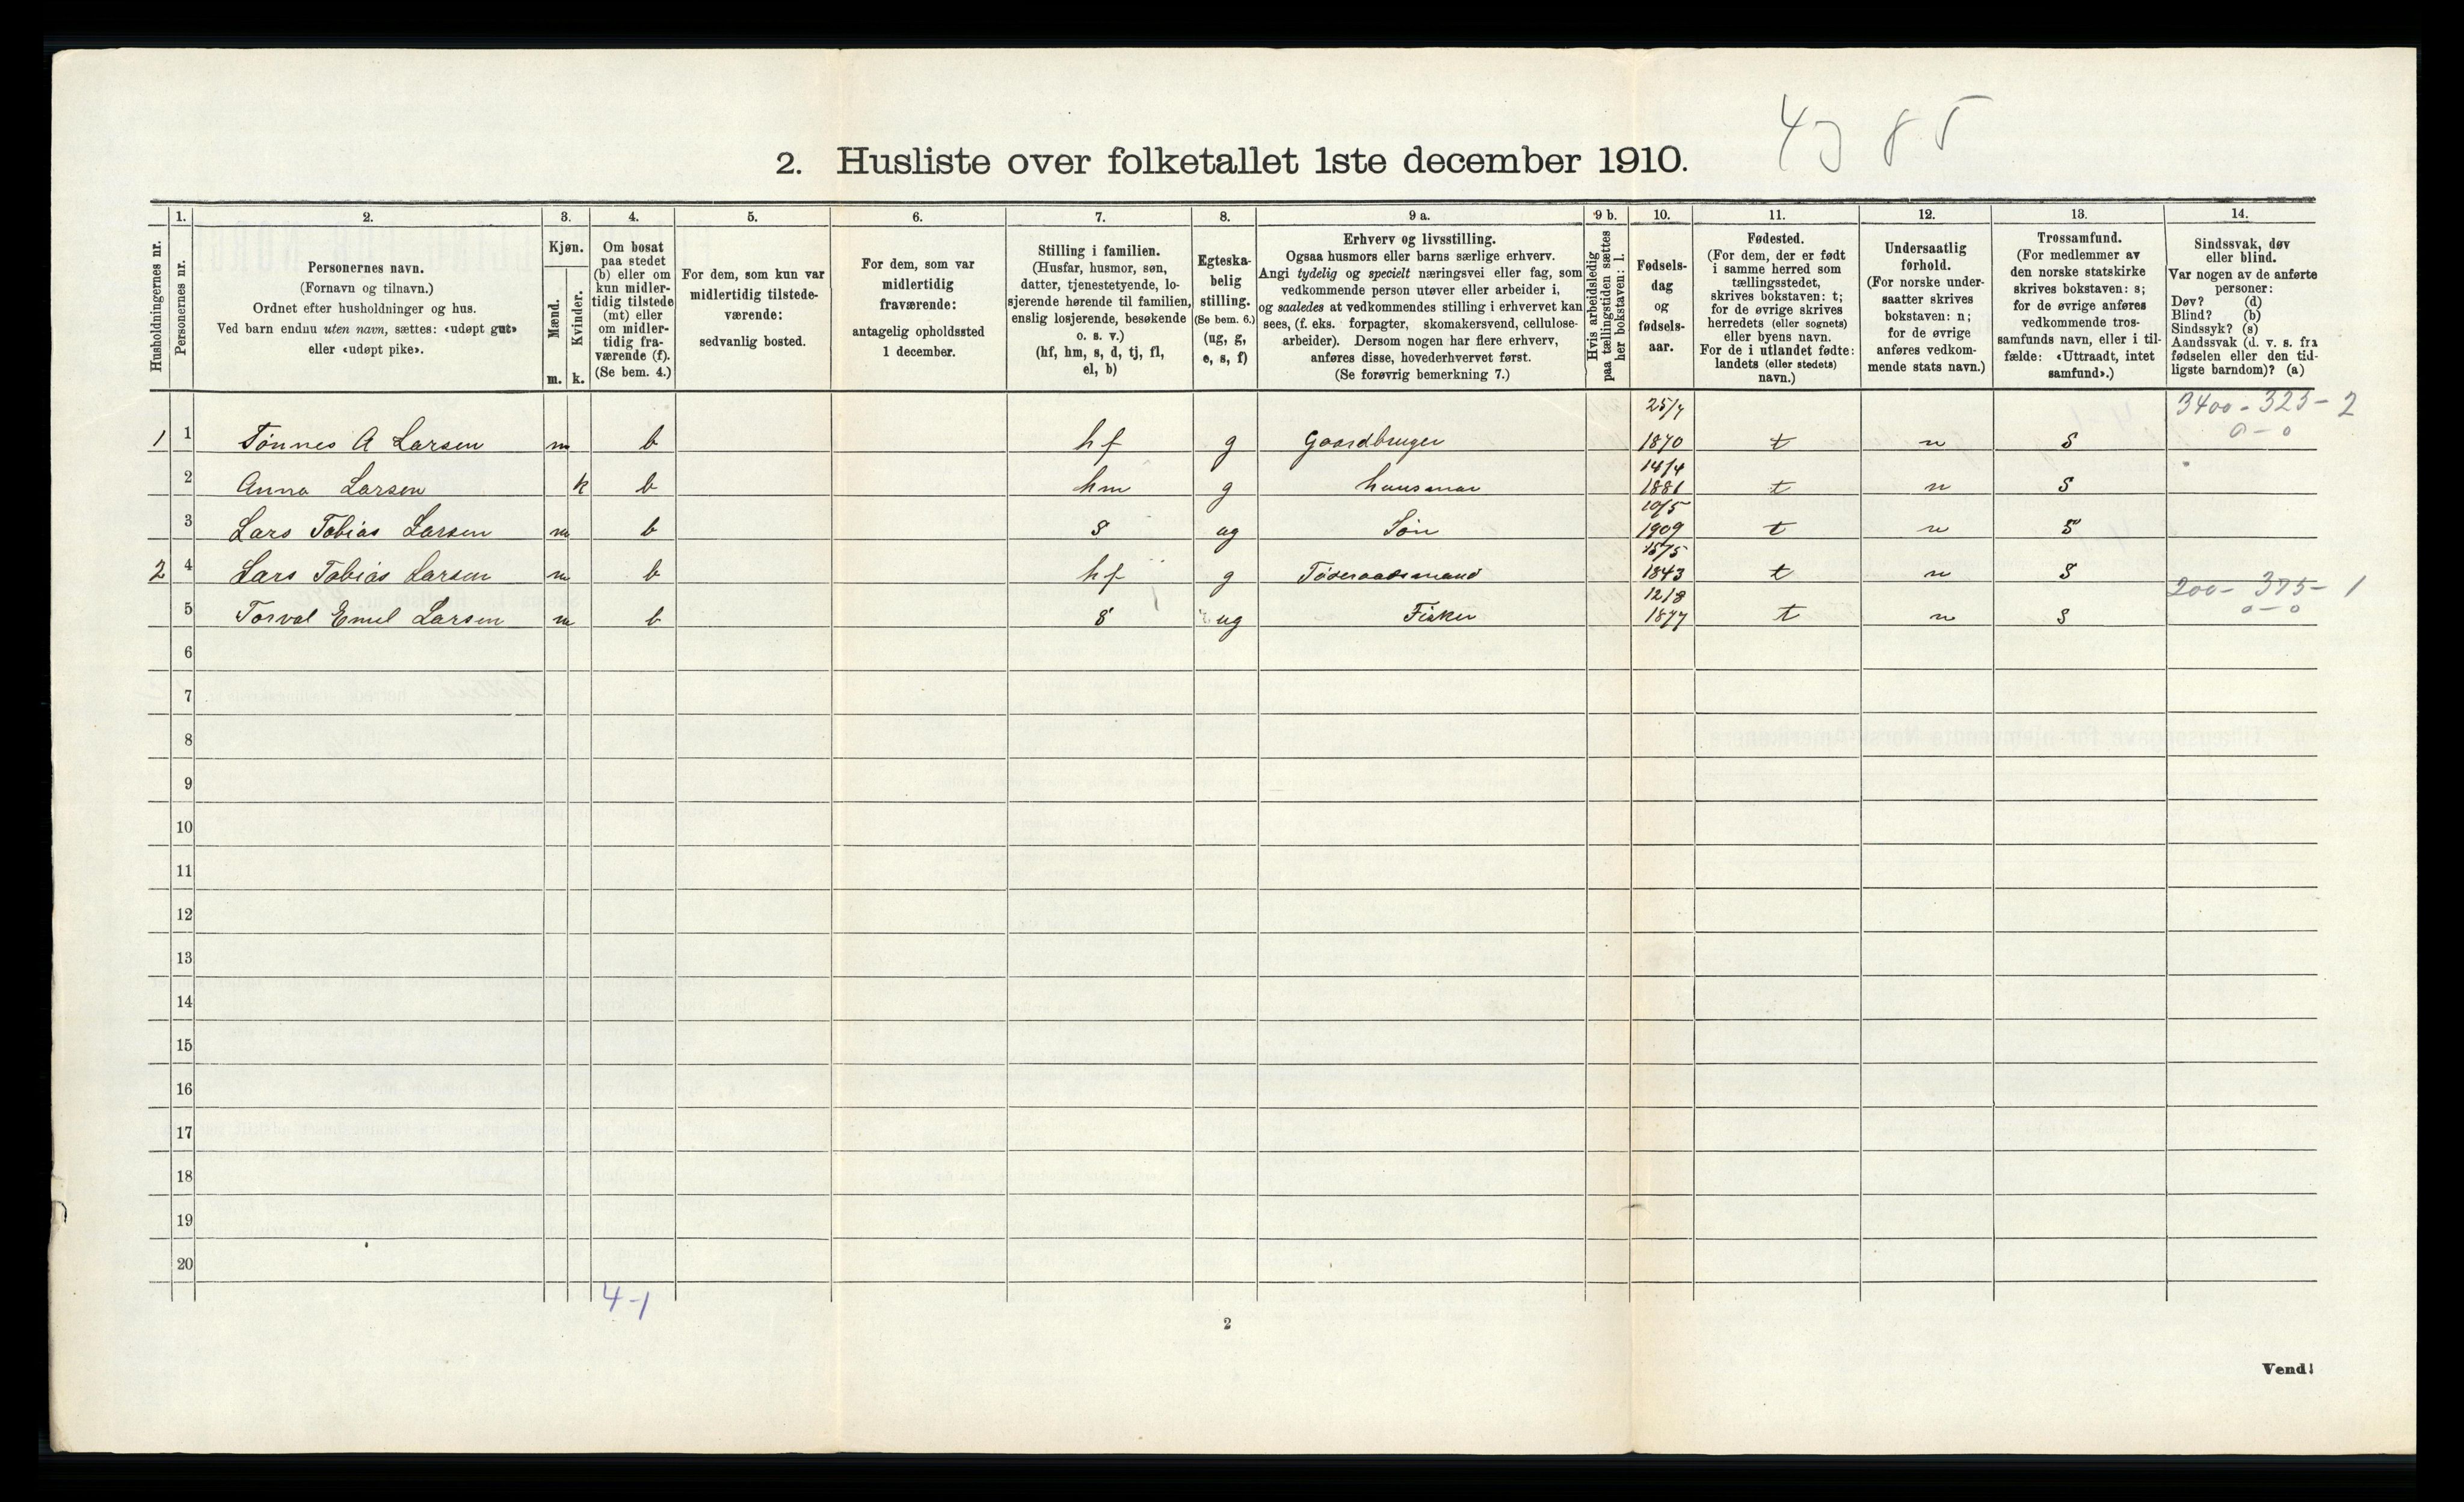 4385
2. Husliste over folketallet 1ste december 1910.
Husholdningernes nr.
1.
Personernes nr.
2.
Personernes navn.
(Fornavn og tilnavn.)
Ordnet efter husholdninger og hus.
Ved barn endnu uten navn, sættes: «udøpt gut»
eller «udøpt pike».
3.
Kjøn.
Mænd.
Kvinder.
m. k.
4.
Om bosat
paa stedet
(b) eller om
kun midler-
tidig tilstede
(mt) eller
om midler-
tidig fra-
værende (f).
(Se bem. 4.)
5.
For dem, som kun var
midlertidig tilstede-
værende:
sedvanlig bosted.
6.
For dem, som var
midlertidig
fraværende:
antagelig opholdssted
1 december.
7.
Stilling i familien.
(Husfar, husmor, søn,
datter, tjenestetyende, lo-
sjerende hørende til familien,
enslig losjerende, besøkende
o. s. v.)
(hf, hm, s, d, tj, fl,
el, b)
8.
Egteska-
belig
stilling.
(Se bem. 6.)
(ug, g,
e, s, f)
9 a.
Erhverv og livsstilling.
Ogsaa husmors eller barns særlige erhverv.
Angi tydelig og specielt næringsvei eller fag, som
vedkommende person utøver eller arbeider i,
og saaledes at vedkommendes stilling i erhvervet kan
sees, (f. eks. forpagter, skomakersvend, cellulose-
arbeider). Dersom nogen har flere erhverv,
anføres disse, hovederhvervet først.
(Se forøvrig bemerkning 7.)
9 b.
Hvis arbeidsledig
paa tællingstiden sættes
her bokstaven: l.
10.
Fødsels-
dag
og
fødsels-
aar.
11.
Fødested.
(For dem, der er født
i samme herred som
tællingsstedet,
skrives bokstaven: t;
for de øvrige skrives
herredets (eller sognets)
eller byens navn.
For de i utlandet fødte:
landets (eller stedets)
navn.)
12.
Undersaatlig
forhold.
(For norske under-
saatter skrives
bokstaven: n;
for de øvrige
anføres vedkom-
mende stats navn.)
13.
Trossamfund.
(For medlemmer av
den norske statskirke
skrives bokstaven: s;
for de øvrige anføres
vedkommende tros-
samfunds navn, eller i til-
fælde: «Uttraadt, intet
samfund».)
14.
Sindssvak, døv
eller blind.
Var nogen av de anførte
personer:
Døv? (d)
Blind? (b)
Sindssyk? (s)
Aandssvak (d. v. s. fra
fødselen eller den tid-
ligste barndom)? (a)
3400 - 325 - 2
0 - 0
1 1 Tønnes A Larsen m b hf g Gaardbruger 25/7 1870 t n S
2 Anna Larsen k b hm g 14/4 1881 t n S
3 Lars Tobias Larsen m b s ug Søn 10/5 1909 t n S
2 4 Lars Tobias Larsen m b hf g 1843 t n S
200 - 375 - 1
0 - 0
5 Torval Emel Larsen m b s ug Fisker 12/8 1877 t n S
6
7
8
9
10
11
12
13
14
15
16
17
18
19
20
4-1
2
Vend!